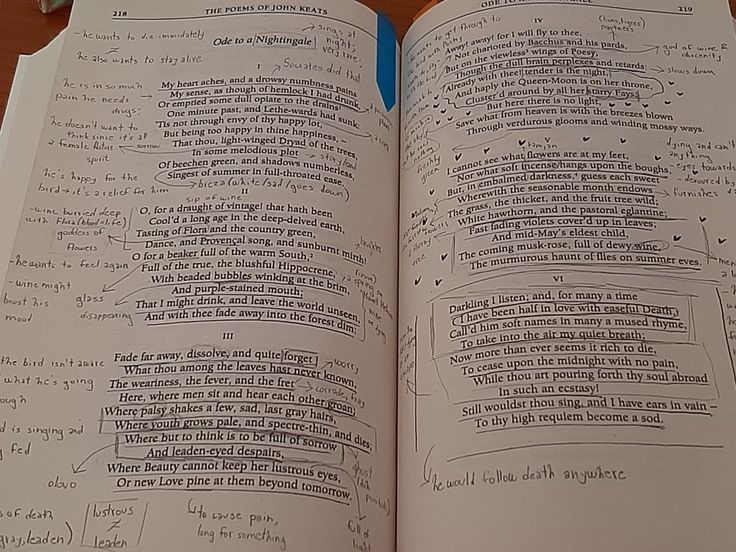 218 THE POEMS OF JOHN KEATS
- he wants to die immediately
≠
he also wants to stay alive
sings at
night,
very
Ode to a Nightingale
I
Socrates did that
My heart aches, and a drowsy numbness pains
My sense, as though of hemlock I had drunk,
Or emptied some dull opiate to the drains
One minute past, and Lethe-wards had sunk:
'Tis not through envy of thy happy lot,
But being too happy in thine happiness, –
That thou, light-winged Dryad of the trees,
In some melodious plot
Of beechen green, and shadows numberless,
Singest of summer in full-throated ease.
he is in so much
pain he needs
drugs
he doesn't want to
think since it's all
sorrow
a female
spirit
he's happy for the
bird → it's a relief for him
(white/sad/goes down)
II
sip of wine
O, for a draught of vintage! that hath been
Cool'd a long age in the deep-delved earth,
Tasting of Flora and the country green,
Dance, and Provençal song, and sunburnt mirth!
O for a beaker full of the warm South,
Full of the true, the blushful Hippocrene,
With beaded bubbles winking at the brim,
And purple-stained mouth;
That I might drink, and leave the world unseen,
And with thee fade away into the forest dim:
- wine burried deep
with Flora (blood=life)
goddess of
flowers
- he wants to feel again
- wine might
boost his
mood
glass
disappearing
III
Fade far away, dissolve, and quite forget
What thou among the leaves hast never known,
The weariness, the fever, and the fret
Here, where men sit and hear each other groan;
Where palsy shakes a few, sad, last gray hairs,
Where youth grows pale, and spectre-thin, and dies;
Where but to think is to be full of sorrow
And leaden-eyed despairs,
Where Beauty cannot keep her lustrous eyes,
Or new Love pine at them beyond tomorrow.
worry
corrode,
the bird isn't aware
what he's going
is singing and
fed
olovo
ghost
full of
light
s of death
gray, leaden)
lustrous
≠
leaden
to cause pain,
long for something
219
IV
(lions, tigers)
panthers
Away! away! for I will fly to thee,
Not charioted by Bacchus and his pards,
But on the viewless wings of Poesy,
Though the dull brain perplexes and retards:
Already with thee! tender is the night,
And haply the Queen-Moon is on her throne,
Cluster'd around by all her starry Fays;
But here there is no light,
Save what from heaven is with the breezes blown
Through verdurous glooms and winding mossy ways.
god of wine &
slows down
V
I cannot see what flowers are at my feet,
Nor what soft incense hangs upon the boughs,
But, in embalmed darkness, guess each sweet
Wherewith the seasonable month endows
The grass, the thicket, and the fruit tree wild;
White hawthorn, and the pastoral eglantine;
Fast fading violets cover'd up in leaves;
And mid-May's eldest child,
The coming musk-rose, full of dewy wine,
The murmurous haunt of flies on summer eves.
- dying and can't
anything
towards
devoured by
furnishes
VI
Darkling I listen; and, for many a time
I have been half in love with easeful Death,
Call'd him soft names in many a mused rhyme,
To take into the air my quiet breath;
Now more than ever seems it rich to die,
To cease upon the midnight with no pain,
While thou art pouring forth thy soul abroad
In such an ecstasy!
Still wouldst thou sing, and I have ears in vain –
To thy high requiem become a sod.
he would follow death anywhere